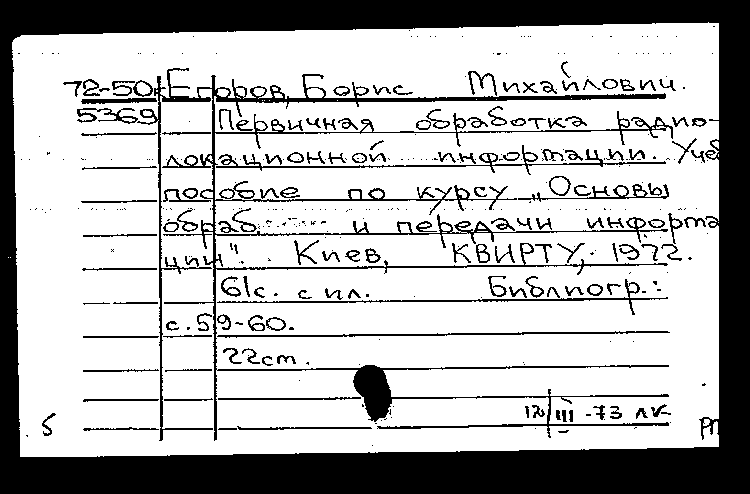 72-50к Егоров, Борис Михайлович.
5369 Первичная обработка радио-
локационной информации. Учеб
пособие по курсу „Основы
обраб и передачи информа
ции". Киев, КВИРТУ, 1972.
61с. с ил. Библиогр.:
с.59-60.
22см.
III -73 ЛК
5